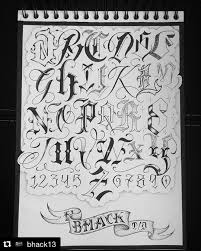 A B C D E F
G h I J K L M
N O P Q R S
T U V W X Y
Z
1 2 3 4 5 6 7 8 9 0
BHACK
bhack13